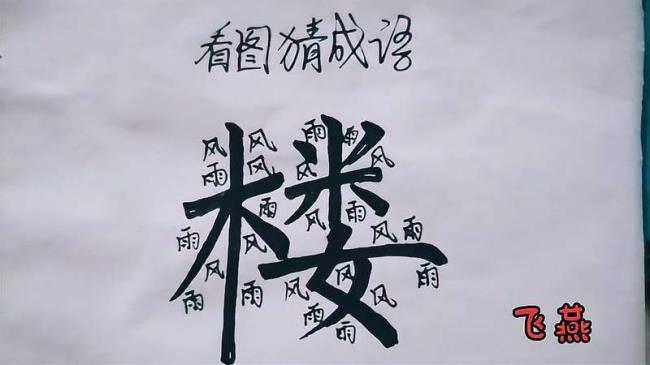 看图猜成语
楼
风 风 雨 雨
雨 风 风 风
雨 风 雨
雨 风 风 雨
风 风 雨
雨 雨 风 风
雨
雨
飞燕